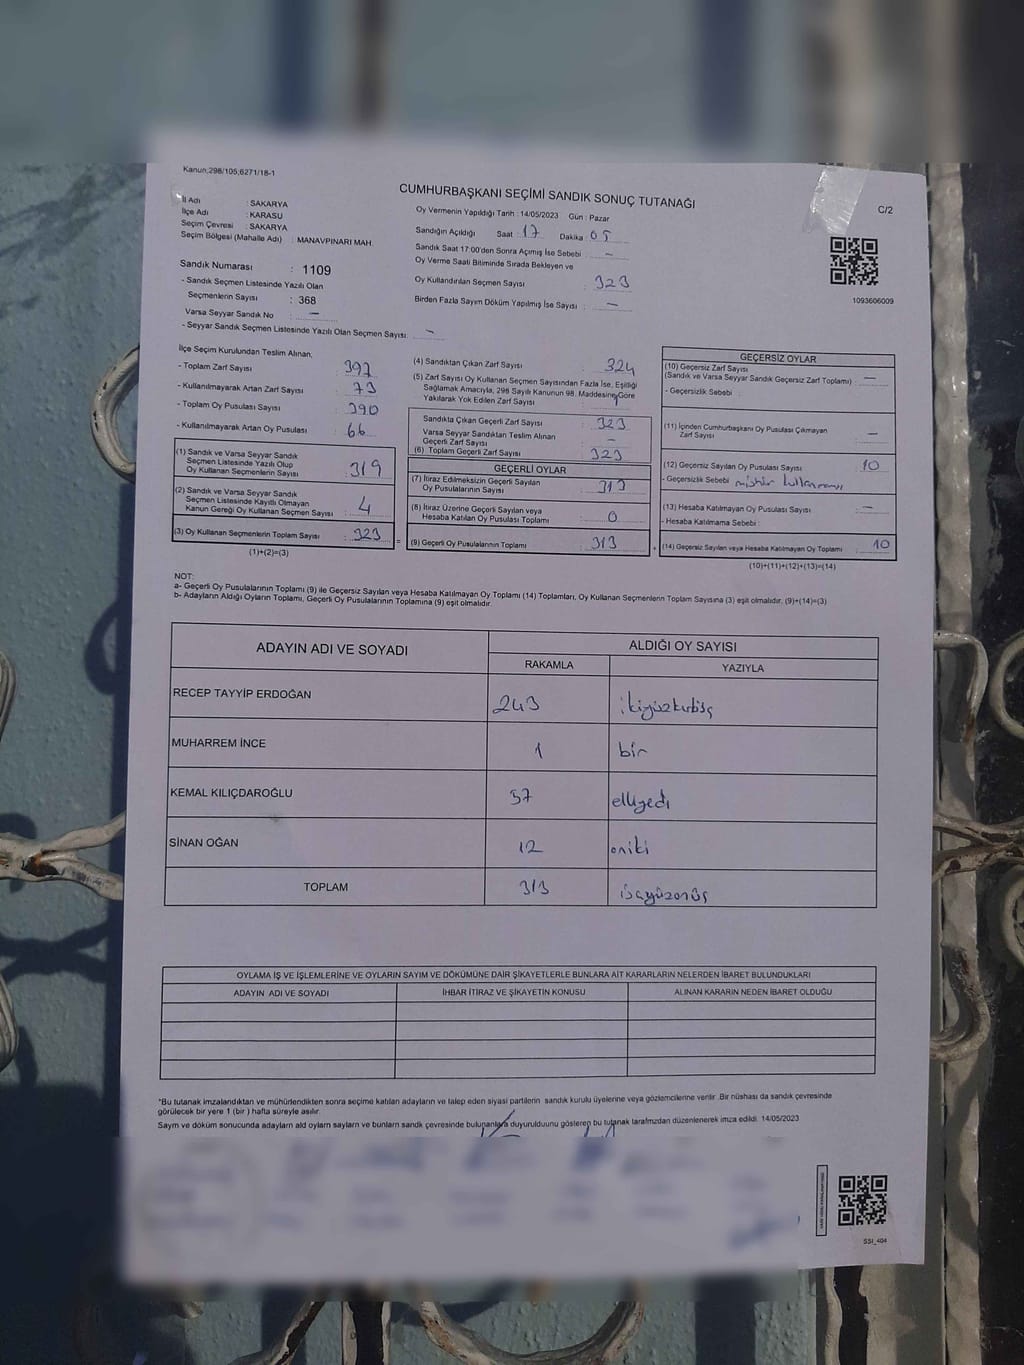 Kanun;298/105;6271/18-1
CUMHURBAŞKANI SEÇİMİ SANDIK SONUÇ TUTANAĞI
C/2
İl Adı : SAKARYA
İlçe Adı : KARASU
Seçim Çevresi : SAKARYA
Seçim Bölgesi (Mahalle Adı) : MANAVPINARI MAH.
Sandık Numarası : 1109
- Sandık Seçmen Listesinde Yazılı Olan
Seçmenlerin Sayısı : 368
Varsa Seyyar Sandık No : –
- Seyyar Sandık Seçmen Listesinde Yazılı Olan Seçmen Sayısı : –
Oy Vermenin Yapıldığı Tarih : 14/05/2023 Gün : Pazar
Sandığın Açıldığı Saat : 17 Dakika : 05
Sandık Saat 17:00'den Sonra Açımış İse Sebebi : –
Oy Verme Saati Bitiminde Sırada Bekleyen ve
Oy Kullandırılan Seçmen Sayısı : 323
Birden Fazla Sayım Döküm Yapılmış İse Sayısı : –
1093606009
İlçe Seçim Kurulundan Teslim Alınan,
- Toplam Zarf Sayısı : 397
- Kullanılmayarak Artan Zarf Sayısı : 73
- Toplam Oy Pusulası Sayısı : 390
- Kullanılmayarak Artan Oy Pusulası : 66
(1) Sandık ve Varsa Seyyar Sandık
Seçmen Listesinde Yazılı Olup
Oy Kullanan Seçmenlerin Sayısı : 319
(2) Sandık ve Varsa Seyyar Sandık
Seçmen Listesinde Kayıtlı Olmayan
Kanun Gereği Oy Kullanan Seçmen Sayısı : 4
(3) Oy Kullanan Seçmenlerin Toplam Sayısı : 323 =
(1)+(2)=(3)
(4) Sandıktan Çıkan Zarf Sayısı : 324
(5) Zarf Sayısı Oy Kullanan Seçmen Sayısından Fazla İse, Eşitliği
Sağlamak Amacıyla, 298 Sayılı Kanunun 98. Maddesine Göre
Yakılarak Yok Edilen Zarf Sayısı : 1
Sandıkta Çıkan Geçerli Zarf Sayısı : 323
Varsa Seyyar Sandıktan Teslim Alınan
Geçerli Zarf Sayısı : –
(6) Toplam Geçerli Zarf Sayısı : 323
GEÇERLİ OYLAR
(7) İtiraz Edilmeksizin Geçerli Sayılan
Oy Pusulalarının Sayısı : 313
(8) İtiraz Üzerine Geçerli Sayılan veya
Hesaba Katılan Oy Pusulası Toplamı : 0
(9) Geçerli Oy Pusulalarının Toplamı : 313 +
GEÇERSİZ OYLAR
(10) Geçersiz Zarf Sayısı
(Sandık ve Varsa Seyyar Sandık Geçersiz Zarf Toplamı) : –
- Geçersizlik Sebebi :
(11) İçinden Cumhurbaşkanı Oy Pusulası Çıkmayan
Zarf Sayısı : –
(12) Geçersiz Sayılan Oy Pusulası Sayısı : 10
- Geçersizlik Sebebi
(13) Hesaba Katılmayan Oy Pusulası Sayısı : –
- Hesaba Katılmama Sebebi :
(14) Geçersiz Sayılan veya Hesaba Katılmayan Oy Toplamı : 10
(10)+(11)+(12)+(13)=(14)
NOT:
a- Geçerli Oy Pusulalarının Toplamı (9) ile Geçersiz Sayılan veya Hesaba Katılmayan Oy Toplamı (14) Toplamları, Oy Kullanan Seçmenlerin Toplam Sayısına (3) eşit olmalıdır, (9)+(14)=(3)
b- Adayların Aldığı Oyların Toplamı, Geçerli Oy Pusulalarının Toplamına (9) eşit olmalıdır.
ADAYIN ADI VE SOYADI ALDIĞI OY SAYISI
RAKAMLA YAZIYLA
RECEP TAYYİP ERDOĞAN 243 ikiyüzkırküç
MUHARREM İNCE 1 bir
KEMAL KILIÇDAROĞLU 57 elliyedi
SİNAN OĞAN 12 oniki
TOPLAM 313 üçyüzonüç
OYLAMA İŞ VE İŞLEMLERİNE VE OYLARIN SAYIM VE DÖKÜMÜNE DAİR ŞİKAYETLERLE BUNLARA AİT KARARLARIN NELERDEN İBARET BULUNDUKLARI
ADAYIN ADI VE SOYADI İHBAR İTİRAZ VE ŞİKAYETİN KONUSU ALINAN KARARIN NEDEN İBARET OLDUĞU
*Bu tutanak imzalandıktan ve mühürlendikten sonra seçime katılan adayların ve talep eden siyasi partilerin sandık kurulu üyelerine veya gözlemcilerine verilir .Bir nüshası da sandık çevresinde
görülecek bir yere 1 (bir ) hafta süreyle asılır.
Sayım ve döküm sonucunda adayların aldı oyların sayıların ve bunların sandık çevresinde bulunanlara duyurulduunu gösteren bu tutanak tarafımızdan düzenlenerek imza edildi. 14/05/2023
SSI_404